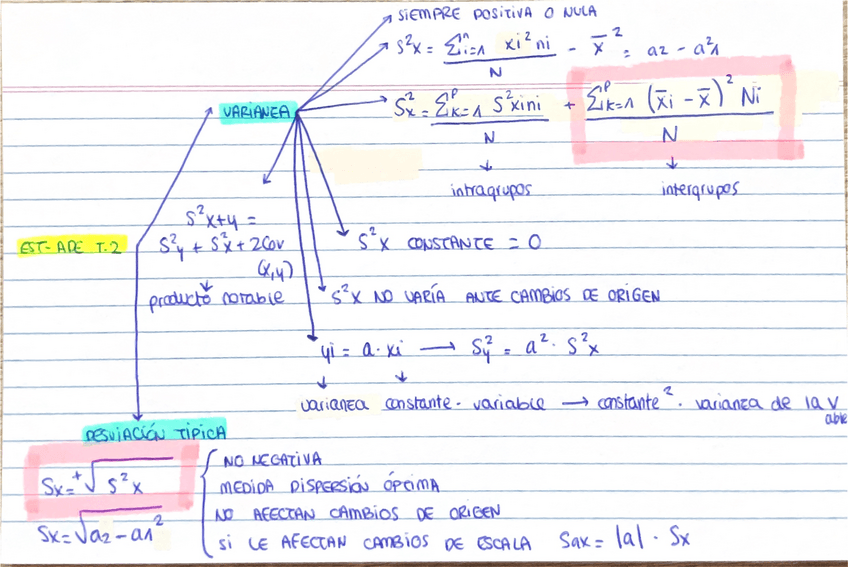 SIEMPRE POSITIVA O NULA
S²x = Σⁿi=1 xi² ni / N - x̄² = a2 - a²1
VARIANZA
S²x = Σᵖk=1 S²xi ni / N + Σᵖk=1 (x̄i - x̄)² Ni / N
intragrupos
intergrupos
S²x+y =
EST-ADE T.2
S²y + S²x + 2Cov
(x,y)
producto notable
S²x CONSTANTE = 0
S²x NO VARÍA ANTE CAMBIOS DE ORIGEN
yi = a · xi → S²y = a² · S²x
varianza constante · variable → constante² · varianza de la V
able
DESVIACIÓN TÍPICA
Sx = +√S²x
Sx = √a2 - a1²
NO NEGATIVA
MEDIDA DISPERSIÓN ÓPTIMA
NO AFECTAN CAMBIOS DE ORIGEN
SI LE AFECTAN CAMBIOS DE ESCALA Sax = |a| · Sx